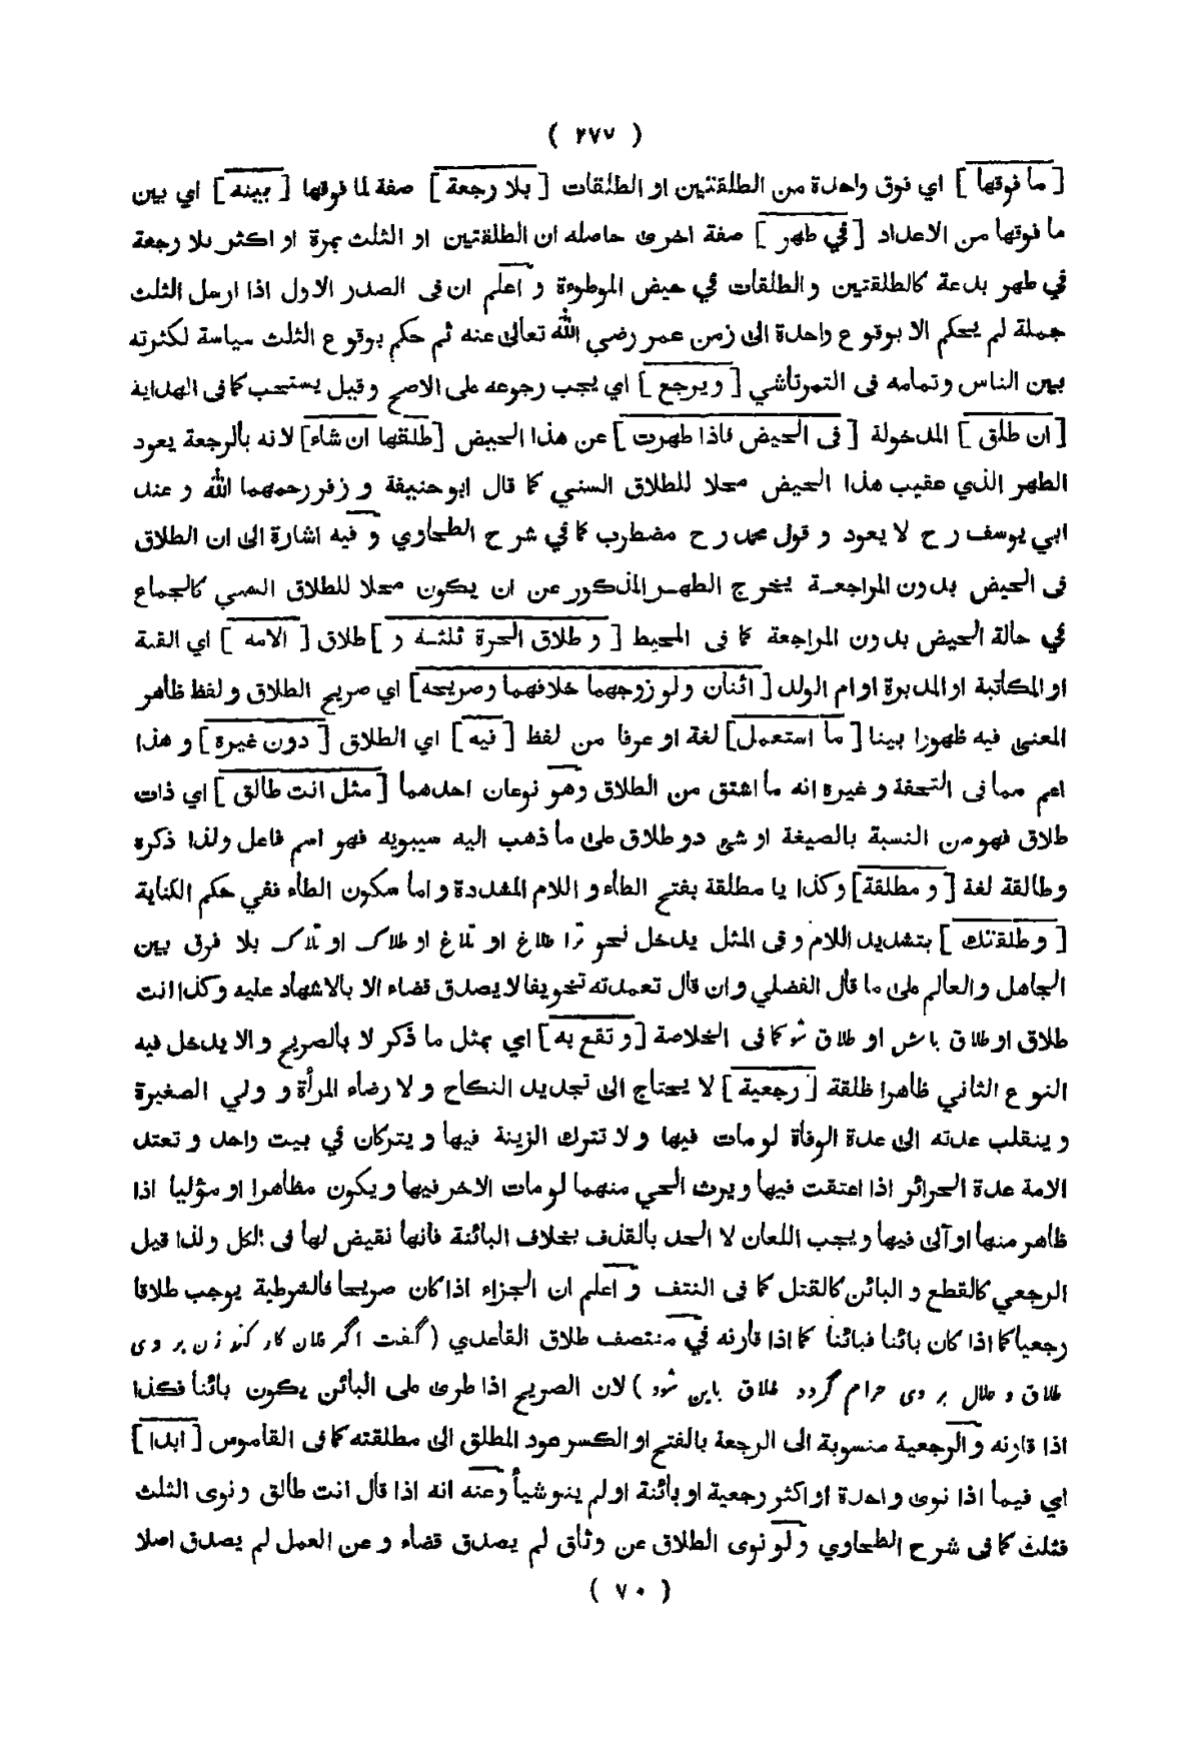 ( ٢٧٧ )
[ ما فوقها ] اي فوق واحدة من الطلقتين او الطلقات [ بلا رجعة ] صفة لما فوقها [ بينه ] اي بين
ما فوقها من الاعداد [ في طهر ] صفة اخرى حاصله ان الطلقتين او الثلث بمرة او اكثر بلا رجعة
في طهر بدعة كالطلقتين والطلقات في حيض الموطوءة و اعلم ان فى الصدر الاول اذا ارسل الثلث
جملة لم يحكم الا بوقوع واحدة الى زمن عمر رضي الله تعالى عنه ثم حكم بوقوع الثلث سياسة لكثرته
بين الناس وتمامه فى التمرتاشي [ ويرجع ] اي يجب رجوعه على الاصح وقيل يستحب كما فى الهداية
[ ان طلق ] المدخولة [ فى الحيض فاذا طهرت ] عن هذا الحيض [ طلقها ان شاء ] لانه بالرجعة يعود
الطهر الذي عقيب هذا الحيض محلا للطلاق السني كما قال ابو حنيفة و زفر رحمهما الله و عند
ابي يوسف رح لا يعود و قول محمد رح مضطرب كما في شرح الطحاوي و فيه اشارة الى ان الطلاق
فى الحيض بدون المراجعة يخرج الطهر المذكور عن ان يكون محلا للطلاق السني كالجماع
في حالة الحيض بدون المراجعة كما فى المحيط [ و طلاق الحرة ثلثة و ] طلاق [ الامه ] اي القنة
او المكاتبة او المدبرة او ام الولد [ اثنان ولو زوجهما خلافهما وصريحه ] اي صريح الطلاق و لفظ ظاهر
المعنى فيه ظهورا بينا [ ما استعمل ] لغة او عرفا من لفظ [ فيه ] اي الطلاق [ دون غيره ] و هذا
اعم مما فى التحفة و غيره انه ما اشتق من الطلاق وهو نوعان احدهما [ مثل انت طالق ] اي ذات
طلاق فهو من النسبة بالصيغة او شئ ذو طلاق على ما ذهب اليه سيبويه فهو اسم فاعل ولذا ذكره
وطالقة لغة [ و مطلقة ] وكذا يا مطلقة بفتح الطاء و اللام المشددة و اما سكون الطاء ففي حكم الكناية
[ و طلقتك ] بتشديد اللام و فى المثل يدخل نحو ترا طلاغ او تلاغ او طلاك او تلاك بلا فرق بين
الجاهل والعالم على ما قال الفضلي وان قال تعمدته تخويفا لا يصدق قضاء الا بالاشهاد عليه وكذا انت
طلاق او طلاق باش او طلاق شو كما فى الخلاصة [ و تقع به ] اي بمثل ما ذكر لا بالصريح والا يدخل فيه
النوع الثاني ظاهرا طلقة [ رجعية ] لا يحتاج الى تجديد النكاح و لا رضاء المرأة و ولي الصغيرة
و ينقلب عدته الى عدة الوفاة لو مات فيها و لا تترك الزينة فيها و يتركان في بيت واحد و تعتد
الامة عدة الحرائر اذا اعتقت فيها و يرث الحي منهما لو مات الاخر فيها و يكون مظاهرا او مؤليا اذا
ظاهر منها او آلى فيها و يجب اللعان لا الحد بالقذف بخلاف البائنة فانها نقيض لها فى الكل ولذا قيل
الرجعي كالقطع و البائن كالقتل كما فى النتف و اعلم ان الجزاء اذا كان صريحا فالشرطية يوجب طلاقا
رجعيا كما اذا كان بائنا فبائنا كما اذا قارنه في منتصف طلاق القاعدي ( گفت اگر فلان كار كند زن بر وى
طلاق و حلال بر وى حرام گردد طلاق باين شود ) لان الصريح اذا طرى على البائن يكون بائنا فكذا
اذا قارنه و الرجعية منسوبة الى الرجعة بالفتح او الكسر عود المطلق الى مطلقته كما فى القاموس [ ابدا ]
اي فيما اذا نوى واحدة او اكثر رجعية او بائنة او لم ينو شيأ وعنه انه اذا قال انت طالق و نوى الثلث
فثلث كما فى شرح الطحاوي ولو نوى الطلاق عن وثاق لم يصدق قضاء و عن العمل لم يصدق اصلا
( ٧٠ )